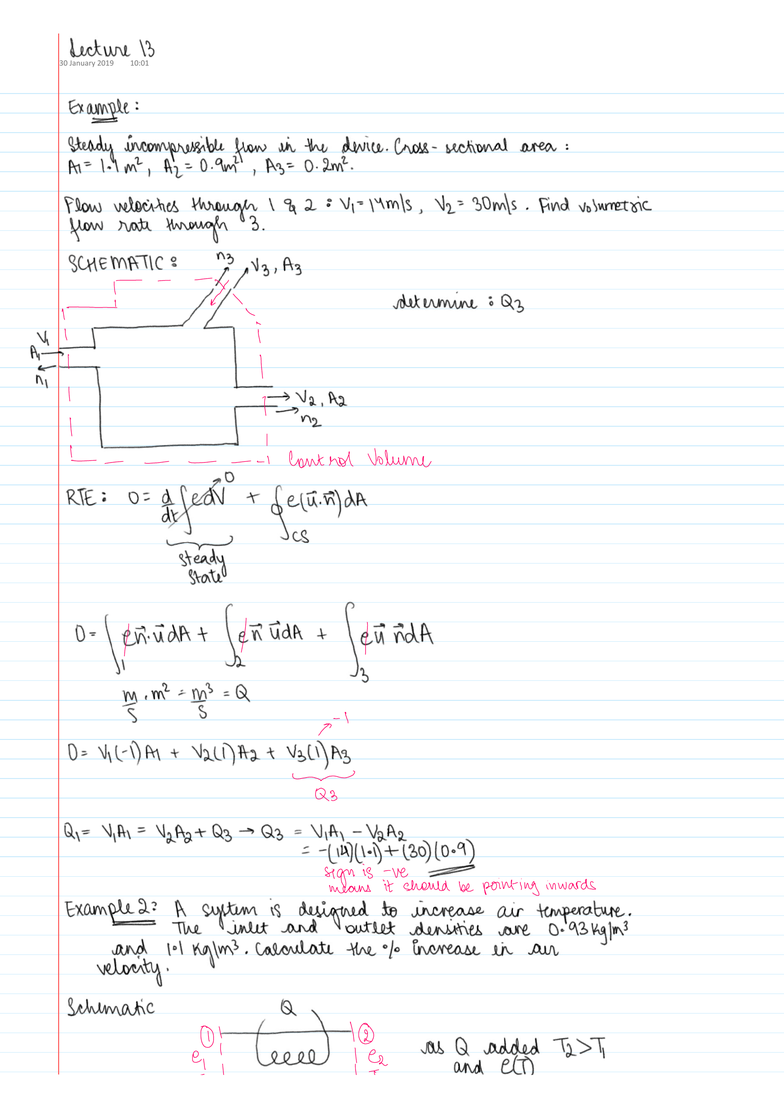 Lecture 13
30 January 2019 10:01
Example:
Steady incompressible flow in the device. Cross-sectional area:
A1 = 1.1 m², A2 = 0.9m², A3 = 0.2m².
Flow velocities through 1 & 2: V1 = 14m/s, V2 = 30m/s. Find volumetric
flow rate through 3.
SCHEMATIC:
n3
V3, A3
determine: Q3
V1
A1
n1
V2, A2
n2
Control Volume
RTE: 0 = d/dt ∫ρdV → 0 + ∮ρ(u⃗.n⃗)dA
CS
Steady
State
0 = ∫₁ ρn⃗.u⃗dA + ∫₂ ρn⃗ u⃗dA + ∫₃ ρu⃗ n⃗dA
m/s . m² = m³/s = Q
-1
0 = V1(-1)A1 + V2(1)A2 + V3(1)A3
Q3
Q1 = V1A1 = V2A2 + Q3 → Q3 = V1A1 - V2A2
= -(14)(1.1) + (30)(0.9)
sign is -ve
means it should be pointing inwards
Example 2: A system is designed to increase air temperature.
The inlet and outlet densities are 0.93 kg/m³
and 1.1 kg/m³. Calculate the % increase in air
velocity.
Schematic
Q
1 2
ρ1 ρ2
as Q added T2>T1
and ρ(T)